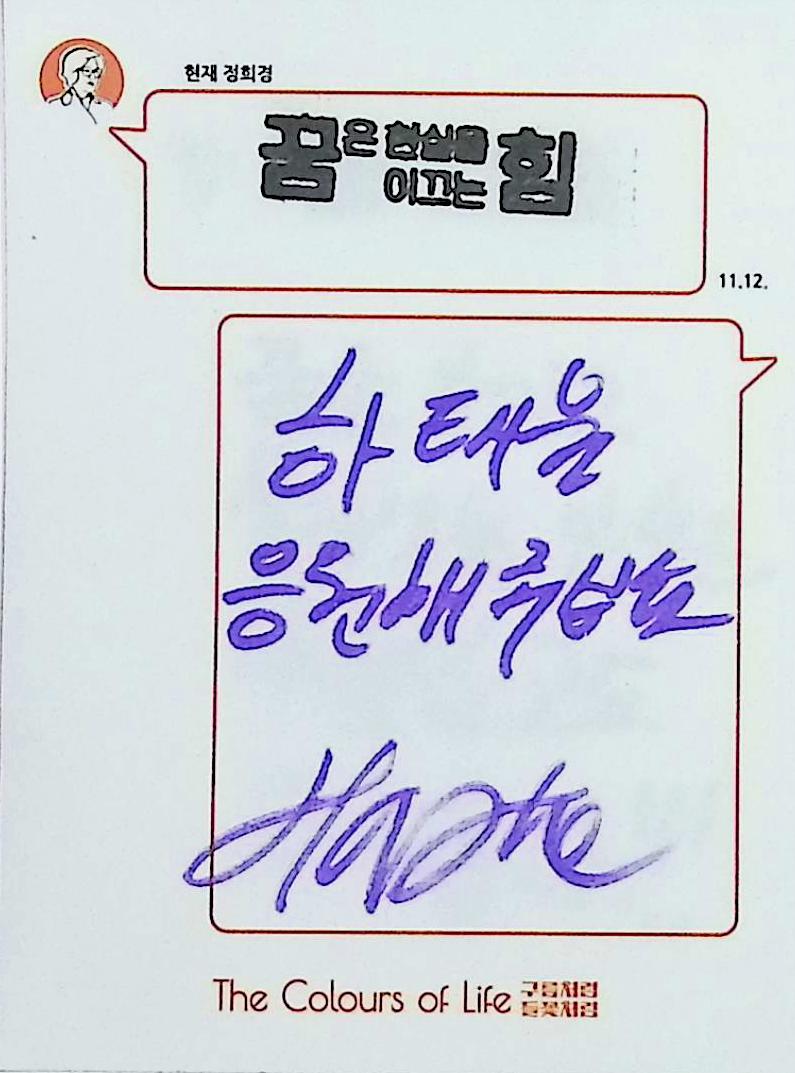 현재 정희경
꿈은 현실을
이끄는 힘
11.12.
하태을
응원해 주십쇼
The Colours of Life 구름처럼
들꽃처럼